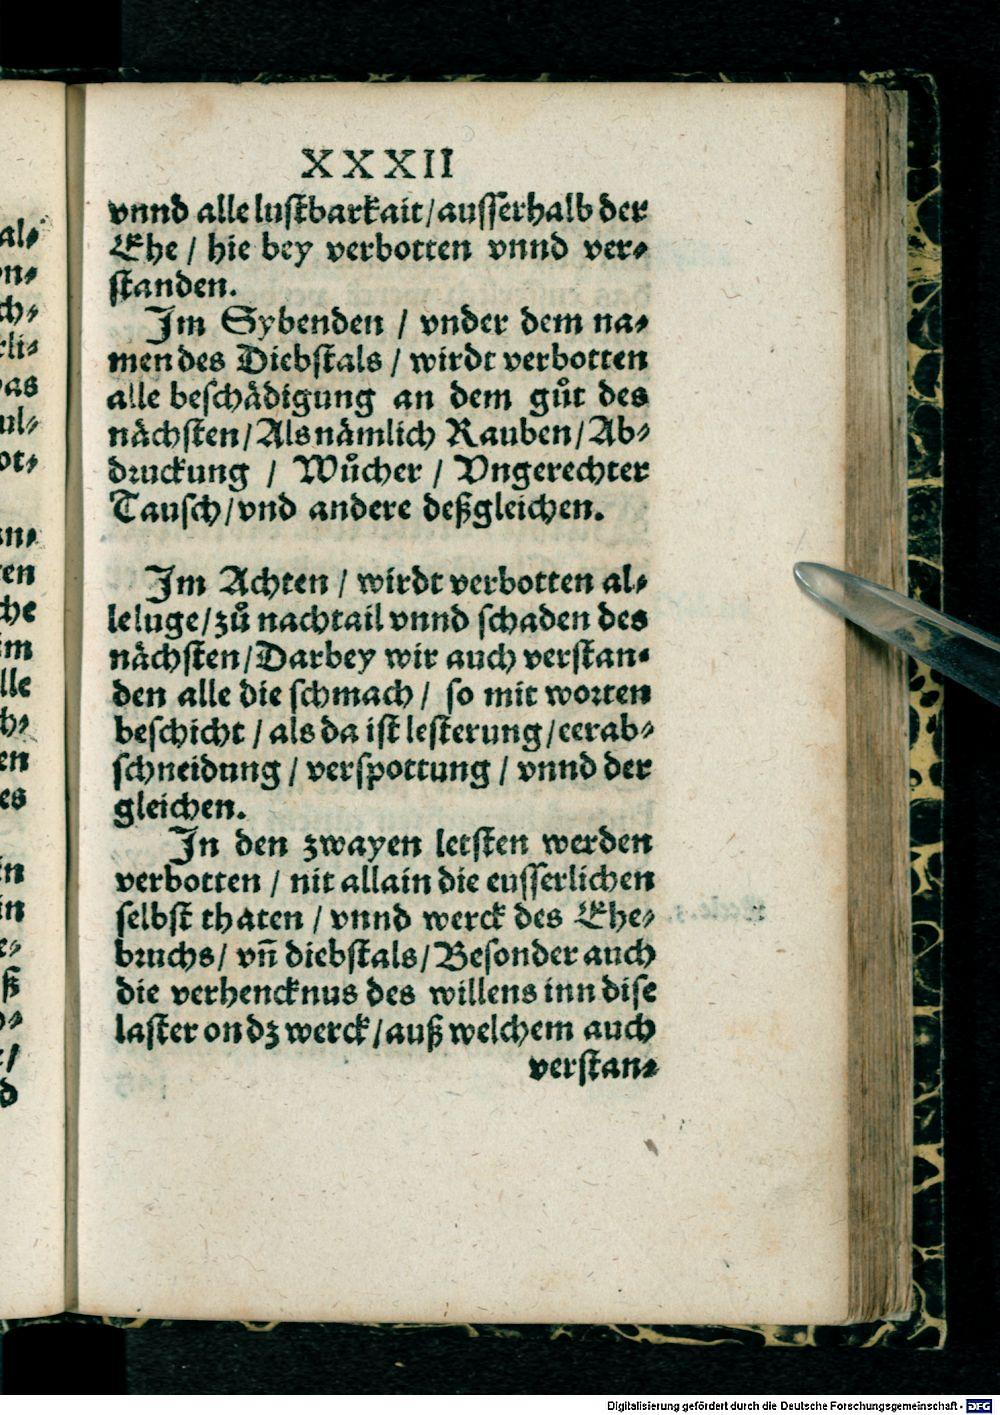 XXXII
vnnd alle lustbarkait/ausserhalb der
Ehe / hie bey verbotten vnnd ver⸗
standen.
Im Sybenden / vnder dem na⸗
men des Diebstals / wirdt verbotten
alle beschädigung an dem gůt des
nächsten/Als nämlich Rauben/Ab⸗
druckung / Wůcher / Vngerechter
Tausch/vnd andere deßgleichen.
Im Achten / wirdt verbotten al⸗
le luge/zů nachtail vnnd schaden des
nächsten/Darbey wir auch verstan⸗
den alle die schmach / so mit worten
beschicht / als da ist lesterung/eerab⸗
schneidung / verspottung / vnnd der
gleichen.
In den zwayen letsten werden
verbotten / nit allain die eusserlichen
selbst thaten / vnnd werck des Ehe⸗
bruchs/ vñ diebstals/Besonder auch
die verhencknus des willens inn dise
laster on dz werck/auß welchem auch
verstan⸗
Digitalisierung gefördert durch die Deutsche Forschungsgemeinschaft - DFG